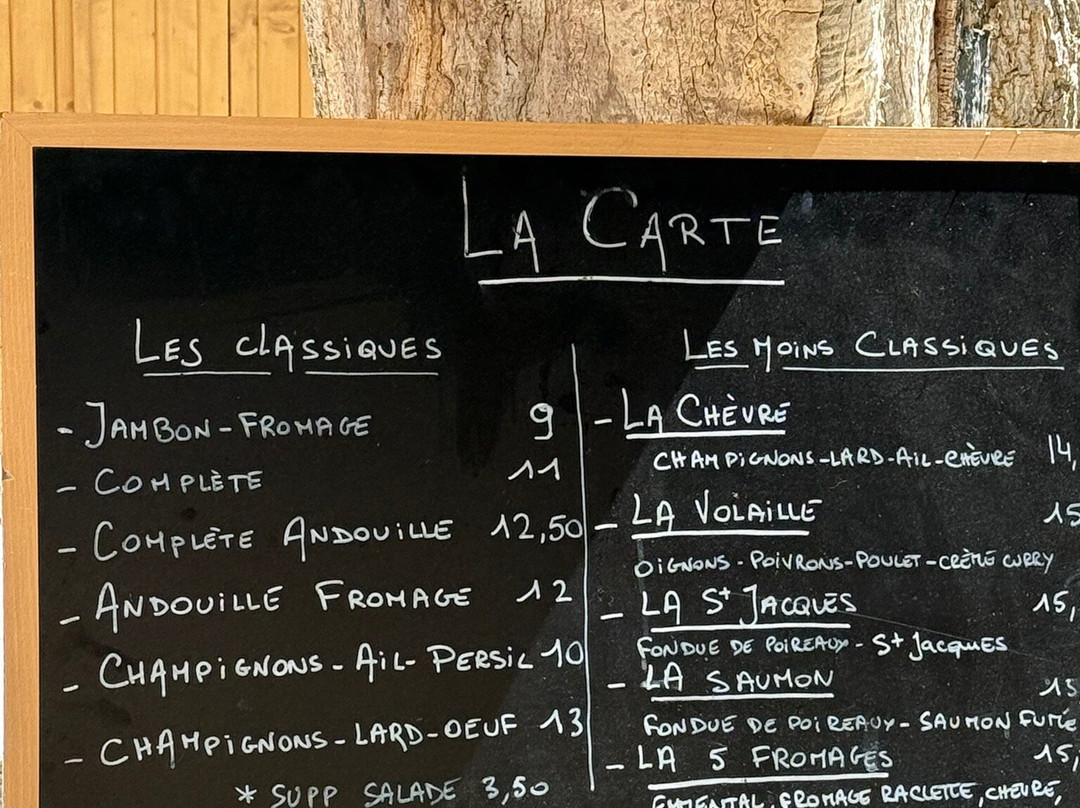 LA CARTE
LES CLASSIQUES
- JAMBON-FROMAGE 9
- COMPLÈTE 11
- COMPLÈTE ANDOUILLE 12,50
- ANDOUILLE FROMAGE 12
- CHAMPIGNONS-AIL-PERSIL 10
- CHAMPIGNONS-LARD-OEUF 13
* SUPP SALADE 3,50
LES MOINS CLASSIQUES
- LA CHÈVRE
CHAMPIGNONS-LARD-AIL-CHÈVRE 14,
- LA VOLAILLE 15
OIGNONS-POIVRONS-POULET-CRÈME CURRY
- LA St JACQUES 15,
FONDUE DE POIREAUX-St JACQUES
- LA SAUMON 15
FONDUE DE POIREAUX-SAUMON FUMÉ
- LA 5 FROMAGES 15,
EMMENTAL, FROMAGE RACLETTE, CHEVRE,